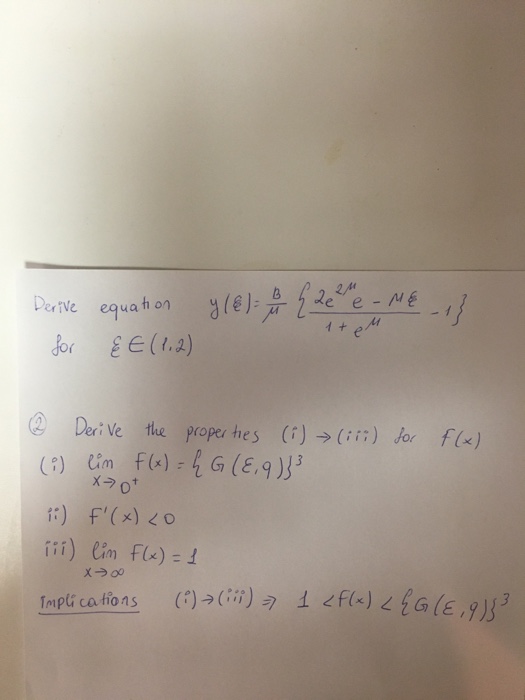 Derive equation y(ξ) = B/M { 2e^2M e - Mξ / 1 + e^M - 1}
for ξ ∈ (1,2)
② Derive the properties (i) → (iii) for f(x)
(i) lim x→0⁺ f(x) = {G(ε,q)}³
ii) f'(x) < 0
iii) lim x→∞ f(x) = 1
Implications (i) → (iii) ⇒ 1 < f(x) < {G(ε,q)}³